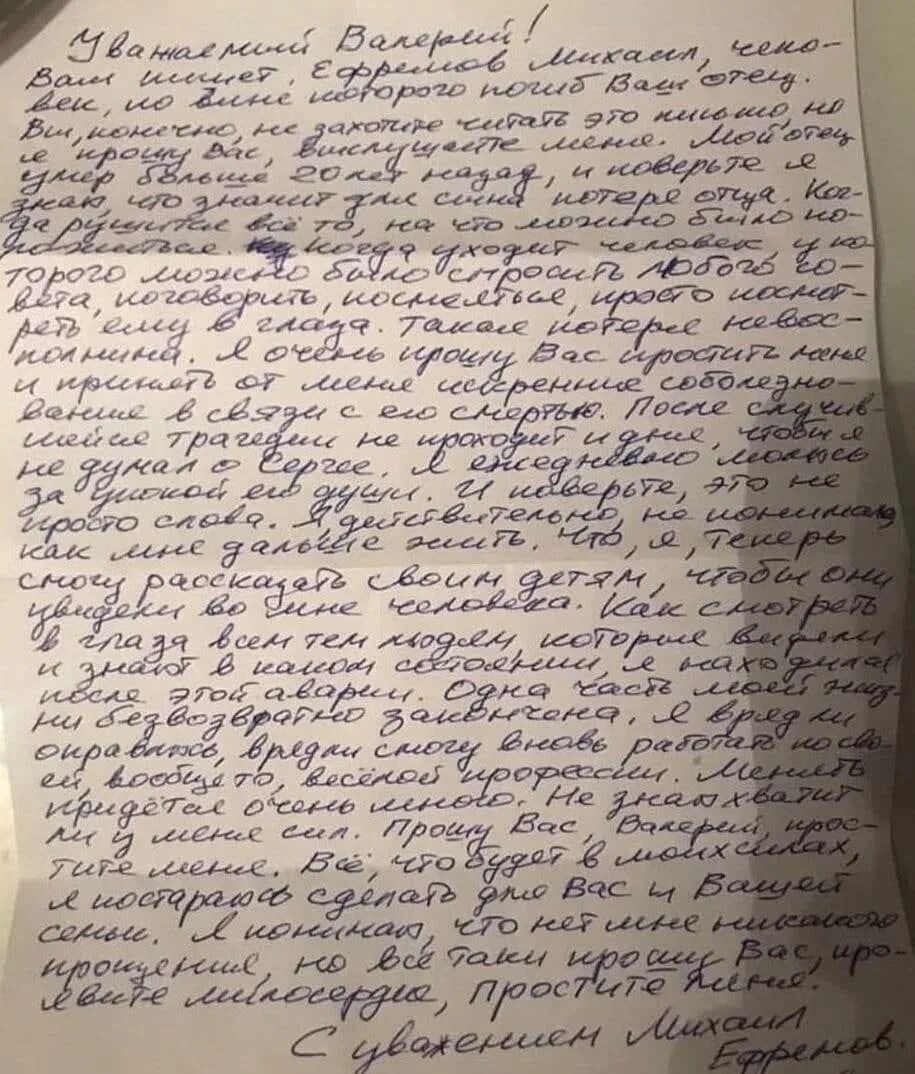 Уважаемый Валерий!
Вам пишет, Ефремов Михаил, чело-
век, по вине которого погиб Ваш отец.
Вы, конечно, не захотите читать это письмо, но
я прошу Вас, выслушайте меня. Мой отец
умер больше 20 лет назад, и поверьте я
знаю, что значит для сына потеря отца. Ког-
да рушится всё то, на что можно было по-
ложиться. Когда уходит человек, у ко
торого можно было спросить любого со-
вета, поговорить, посмеяться, просто посмот-
реть ему в глаза. Такая потеря невос-
полнима. Я очень прошу Вас простить меня
и принять от меня искренние соболезно-
вание в связи с его смертью. После случив-
шейся трагедии не проходит и дня, чтобы я
не думал о Сергее. Я ежедневно молюсь
за упокой его души. И поверьте, это не
просто слова. Я, действительно, не понимаю
как мне дальше жить. Что, я, теперь
смогу рассказать своим детям, чтобы они
увидели во мне человека. Как смотреть
в глаза всем тем людям, которые видели
и знают в каком состоянии, я находился
после этой аварии. Одна часть моей жиз-
ни безвозвратно закончена. Я вряд ли
оправлюсь, врядли смогу вновь работать по сво-
ей, вообще то, весёлой профессии. Менять
придётся очень много. Не знаю хватит
ли у меня сил. Прошу Вас, Валерий, прос-
тите меня. Всё, что будет в моих силах,
я постараюсь сделать для Вас и Вашей
семьи. Я понимаю, что нет мне никакого
прощения, но всё таки прошу Вас, про-
явите милосердие, простите меня.
С уважением Михаил
Ефремов.